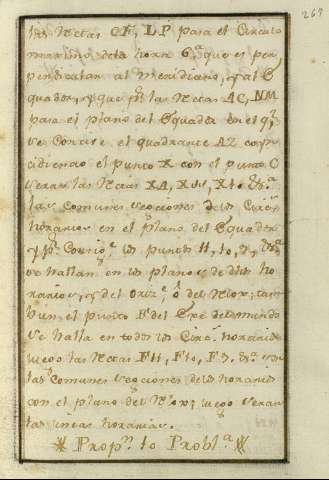 267
las Rectas CF, LP para el Circulo
maximo dela hora 6ª que es per
pendicular al Meridiano, y al E
quador, y que pr las Rectas AC, NM
para el plano del Equador en el ql
se concive el quadrante AZ con
cidiendo el punto X con el punto C
seran las Rectas XA, X11, X10 &ª
las comunes secciones de los Circs
horarios en el plano del Equador
y pr consigte los puntos 11, 10, 9, &ª
se hallan en los planos de dhos ho
rarios, y del Orizte ô del Relox; tam
bien el punto F del Exe del mundo
se halla en todos los Circs horarios
luego las Rectas F11, F10, F9, &ª son
las comunes secciones de los horarios
con el plano del Relox; luego seran
las lineas horarias.
Propn 10 Probla